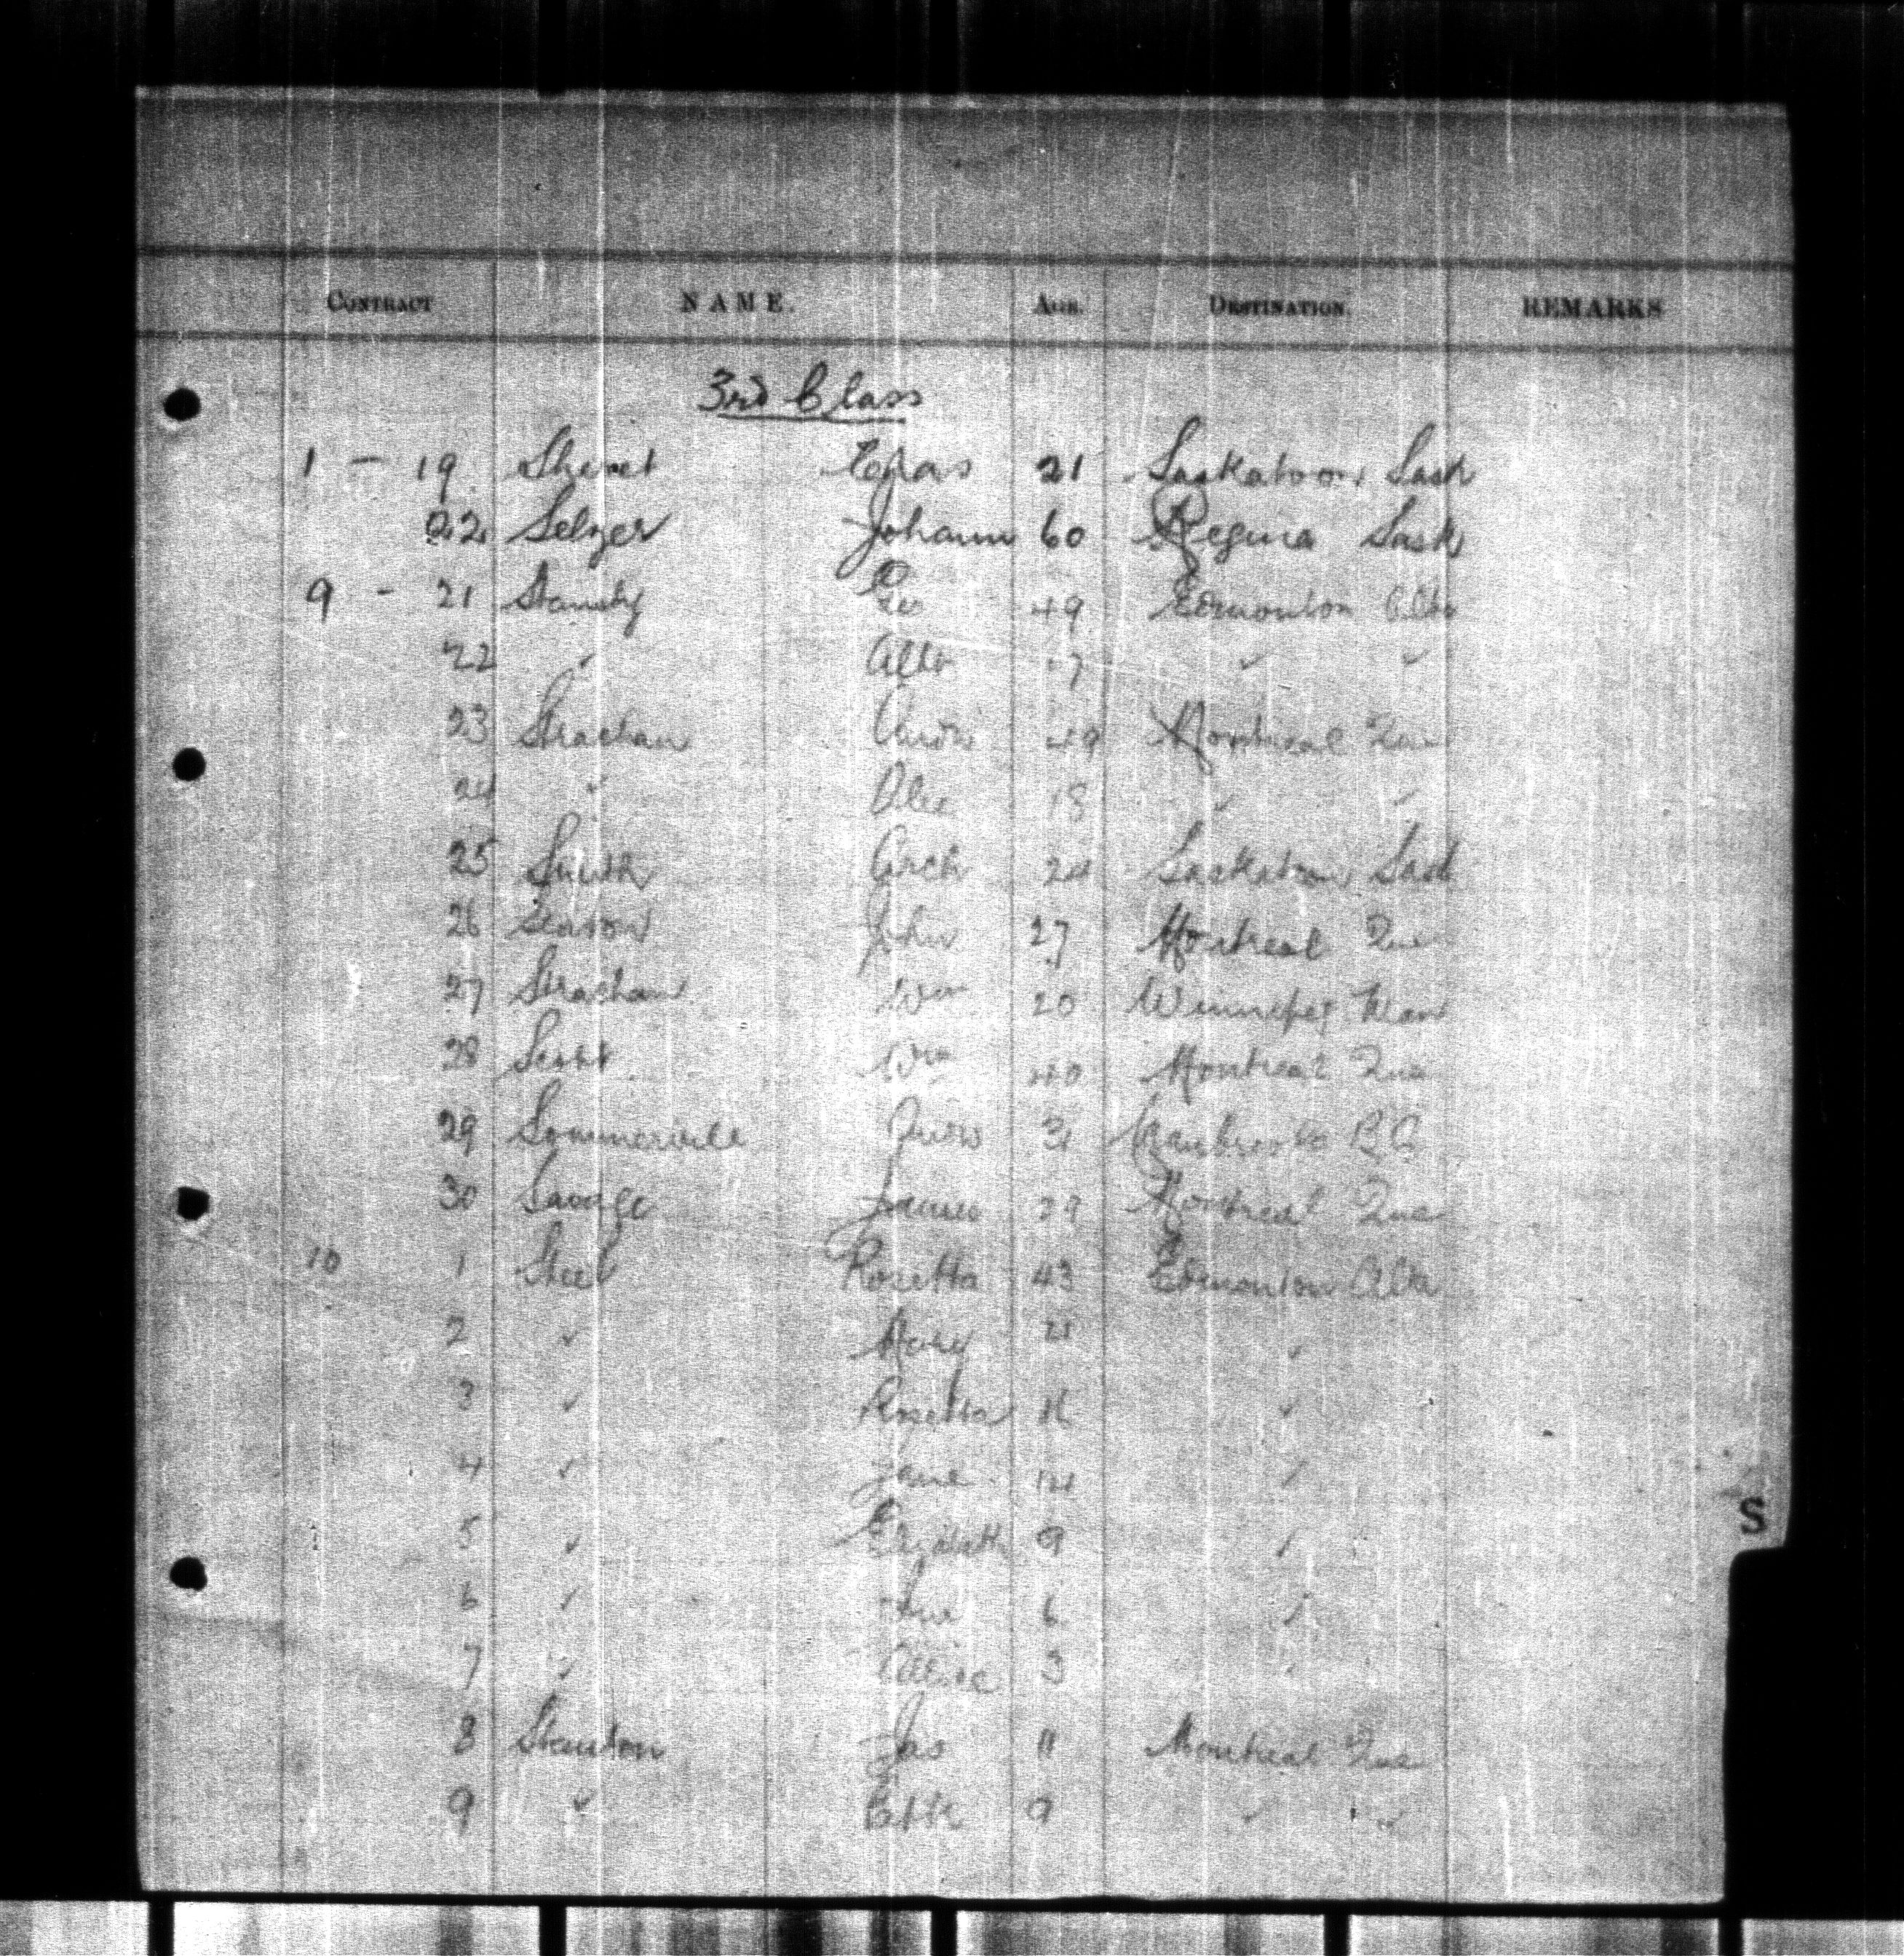 CONTRACT NAME. AGE. DESTINATION. REMARKS
3rd Class
1 - 19 21 Saskatoon Sask
22 Selzer Johann 60 Regina Sask
9 - 21 49 Edmonton Alta
22 ✓ 17 ✓ ✓
23 Strachan 49 Montreal Que
24 ✓ Alex 18 ✓ ✓
25 Smith Arch 24 Saskatoon Sask
26 John 27 Montreal Que
27 Strachan Wm 20 Winnipeg Man
28 Scott Wm 40 Montreal Que
29 Sommerville 31 Cranbrook B C
30 Savage 29 Montreal Que
10 1 Steel Rosetta 43 Edmonton Alta
2 ✓ Mary 21 ✓
3 ✓ Rosetta 16 ✓
4 ✓ Jane 14 ✓
5 ✓ Elizabeth 9 ✓
6 ✓ 6 ✓
7 ✓ 3
S
8 Staunton Jas 11 Montreal Que
9 ✓ 9 ✓ ✓